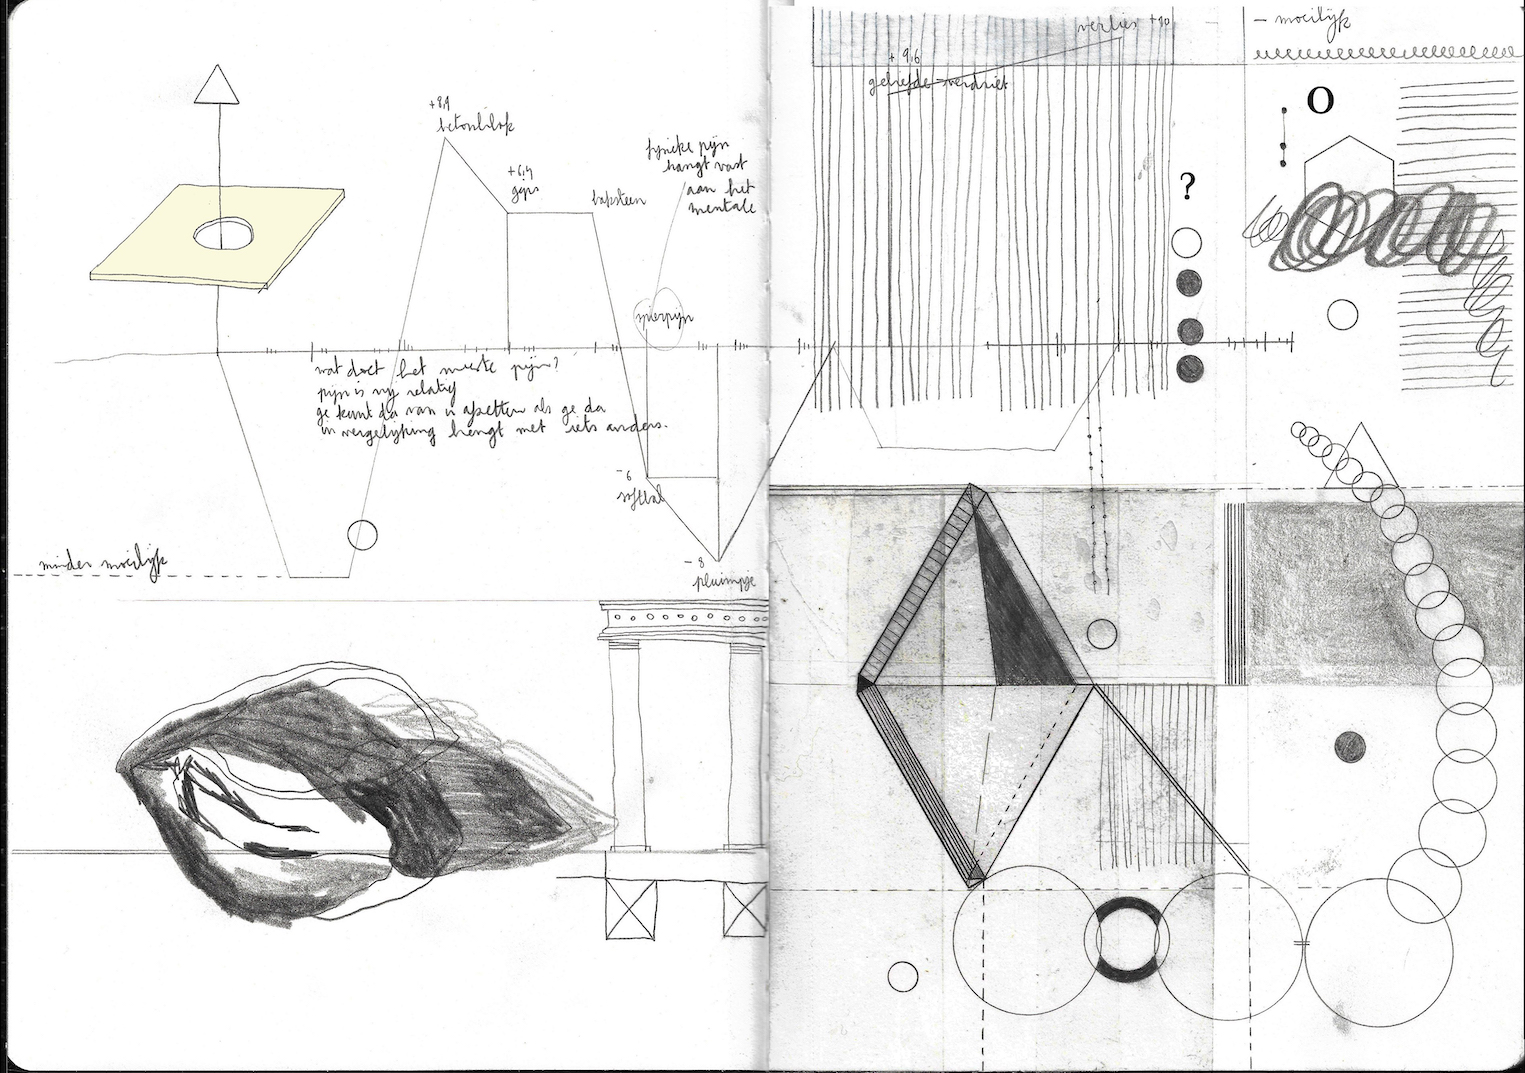 +8,4
betonblok
+6,4
gips
baksteen
fysieke pijn
hangt vast
aan het
mentale
spierpijn
wat doet het meeste pijn?
pijn is vrij relatief
ge kunt da van u afzetten als ge da
in vergelijking brengt met iets anders.
-6
minder moeilijk
-8
pluimpje
verlies +10
- moeilijk
+9,6
geliefde verdriet
O
?